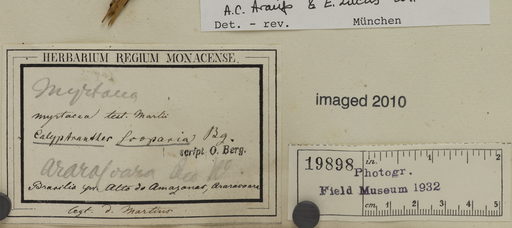 A.C. Araujo & E. Lucas
Det. - rev. München
HERBARIUM REGIUM MONACENSE.
Myrtacea
myrtacea test. Martii
Calyptranthes Bg.
script O. Berg.
Araracoara
Brasilia Alto do Amazonas, Araracoara
Legt. d. Martius
imaged 2010
19898
Photogr.
Field Museum 1932
in. 1 2
cm. 1 2 3 4 5